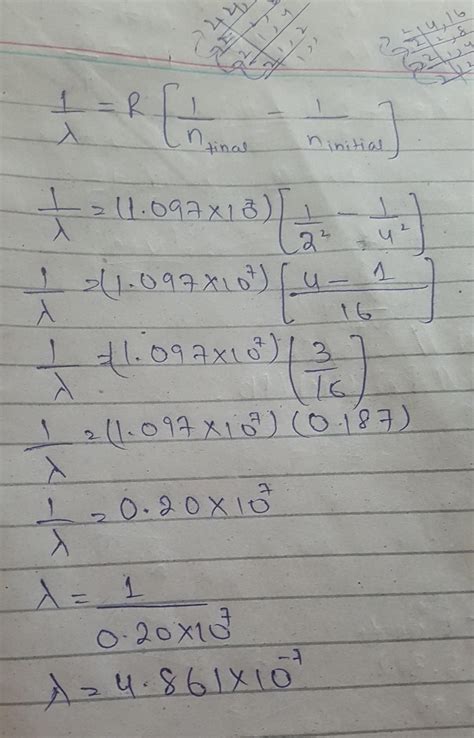 1/λ = R [1/n_final - 1/n_initial]
1/λ = (1.097×10^7) [1/2² - 1/4²]
1/λ = (1.097×10^7) [4 - 1/16]
1/λ = (1.097×10^7) (3/16)
1/λ = (1.097×10^7) (0.187)
1/λ = 0.20×10^7
λ = 1/0.20×10^7
λ = 4.861×10^-7